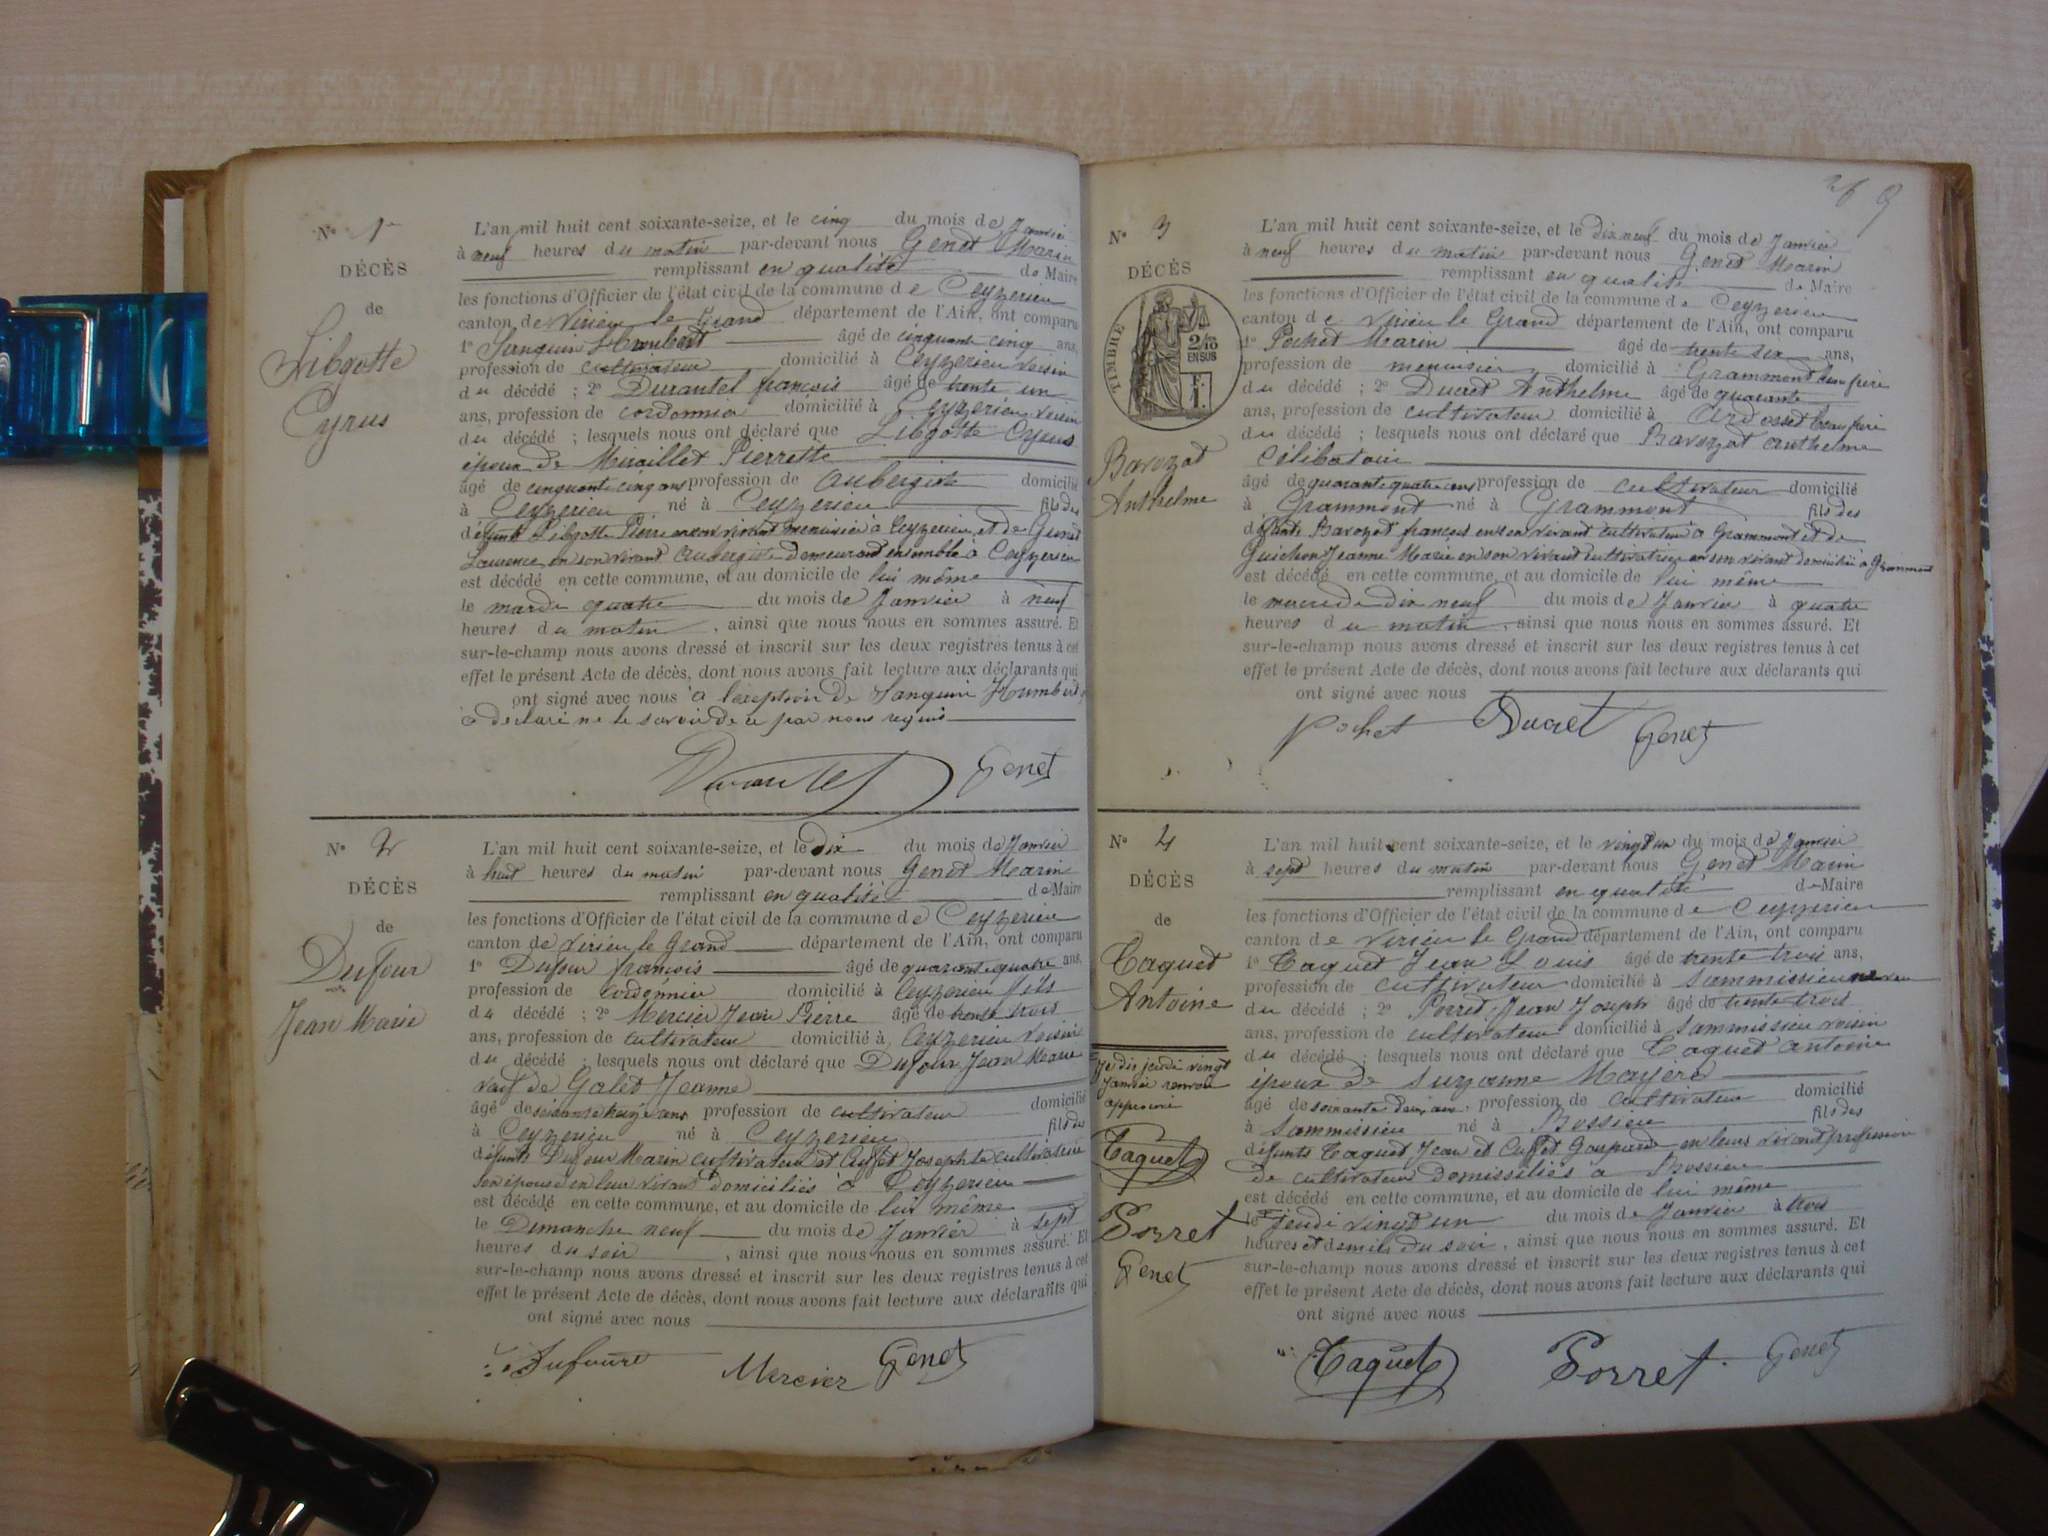 N° 1er
DÉCÈS
de
Libgotte
Cyrus
L'an mil huit cent soixante-seize, et le cinq du mois de Janvier
à neuf heures du matin par-devant nous Genet Marin
remplissant en qualité de Maire
les fonctions d'Officier de l'état civil de la commune de Ceyzerieu
canton de Virieu le Grand département de l'Ain, ont comparu
1° Sanguin Humbert âgé de cinquante cinq ans,
profession de cultivateur domicilié à Ceyzerieu voisin
du décédé ; 2° Durantet françois âgé de trente un
ans, profession de cordonnier domicilié à Ceyzerieu voisin
du décédé ; lesquels nous ont déclaré que Libgotte Cyrus
époux de Miraillet Pierrette
âgé de cinquante cinq ans profession de aubergiste domicilié
à Ceyzerieu né à Ceyzerieu fils des
défunts Libgotte Pierre en son vivant menuisier à Ceyzerieu et de Genet
Laurence en son vivant aubergiste demeurant ensemble à Ceyzerieu
est décédé en cette commune, et au domicile de lui même
le mardi quatre du mois de Janvier à neuf
heures du matin, ainsi que nous nous en sommes assuré. Et
sur-le-champ nous avons dressé et inscrit sur les deux registres tenus à cet
effet le présent Acte de décès, dont nous avons fait lecture aux déclarants qui
ont signé avec nous à l'éception de Sanguin Humbert
a déclaré ne le savoir de ce par nous requis
Durantet Genet
N° 2
DÉCÈS
de
Dufour
Jean Marie
L'an mil huit cent soixante-seize, et le dix du mois de Janvier
à huit heures du matin par-devant nous Genet Marin
remplissant en qualité de Maire
les fonctions d'Officier de l'état civil de la commune de Ceyzerieu
canton de Virieu le Grand département de l'Ain, ont comparu
1° Dufour françois âgé de quarante quatre ans,
profession de cordonnier domicilié à Ceyzerieu fils
du décédé ; 2° Mercier Jean Pierre âgé de trente trois
ans, profession de cultivateur domicilié à Ceyzerieu voisin
du décédé ; lesquels nous ont déclaré que Dufour Jean Marie
veuf de Galet Jeanne
âgé de soixante seize ans profession de cultivateur domicilié
à Ceyzerieu né à Ceyzerieu fils des
défunts Dufour Marin cultivateur et Cuffet Josephte cultivatrice
son épouse en leur vivant domiciliés à Ceyzerieu
est décédé en cette commune, et au domicile de lui même
le Dimanche neuf du mois de Janvier à sept
heures du soir, ainsi que nous nous en sommes assuré. Et
sur-le-champ nous avons dressé et inscrit sur les deux registres tenus à cet
effet le présent Acte de décès, dont nous avons fait lecture aux déclarants qui
ont signé avec nous
Dufour Mercier Genet
9
N° 3
DÉCÈS
TIMBRE
2/10
EN SUS
Bavozat
Anthelme
L'an mil huit cent soixante-seize, et le dix neuf du mois de Janvier
à neuf heures du matin par-devant nous Genet Marin
remplissant en qualité de Maire
les fonctions d'Officier de l'état civil de la commune de Ceyzerieu
canton de Virieu le Grand département de l'Ain, ont comparu
1° Pochet Marin âgé de trente six ans,
profession de menuisier domicilié à Grammont beau frère
du décédé ; 2° Ducret Anthelme âgé de quarante
ans, profession de cultivateur domicilié à Ardosset beau frère
du décédé ; lesquels nous ont déclaré que Bavozat anthelme
célibataire
âgé de quarante quatre ans profession de cultivateur domicilié
à Grammont né à Grammont fils des
défunts Bavozat françois en son vivant cultivateur à Grammont et de
Guichon Jeanne Marie en son vivant cultivatrice en son vivant domiciliée à Grammont
est décédé en cette commune, et au domicile de lui même
le mercredi dix neuf du mois de Janvier à quatre
heures du matin, ainsi que nous nous en sommes assuré. Et
sur-le-champ nous avons dressé et inscrit sur les deux registres tenus à cet
effet le présent Acte de décès, dont nous avons fait lecture aux déclarants qui
ont signé avec nous
Pochet Ducret Genet
N° 4
DÉCÈS
de
Taquet
Antoine
Je dis jeudi vingt
Janvier renvoi
approuvé
Taquet
Perret
Genet
L'an mil huit cent soixante-seize, et le vingt un du mois de Janvier
à sept heures du matin par-devant nous Genet Marin
remplissant en qualité de Maire
les fonctions d'Officier de l'état civil de la commune de Ceyzerieu
canton de Virieu le Grand département de l'Ain, ont comparu
1° Taquet Jean Louis âgé de trente trois ans,
profession de cultivateur domicilié à Sammissieu neveu
du décédé ; 2° Perret Jean Joseph âgé de trente trois
ans, profession de cultivateur domicilié à Sammissieu voisin
du décédé ; lesquels nous ont déclaré que Taquet antoine
époux de Suzanne
âgé de soixante deux ans profession de cultivateur domicilié
à Sammissieu né à Bossieu fils des
défunts Taquet Jean et Cuffet en leur vivant profession
de cultivateurs domissiliés à Bossieu
est décédé en cette commune, et au domicile de lui même
le jeudi vingt un du mois de Janvier à trois
heures et demie du soir, ainsi que nous nous en sommes assuré. Et
sur-le-champ nous avons dressé et inscrit sur les deux registres tenus à cet
effet le présent Acte de décès, dont nous avons fait lecture aux déclarants qui
ont signé avec nous
Taquet Perret Genet